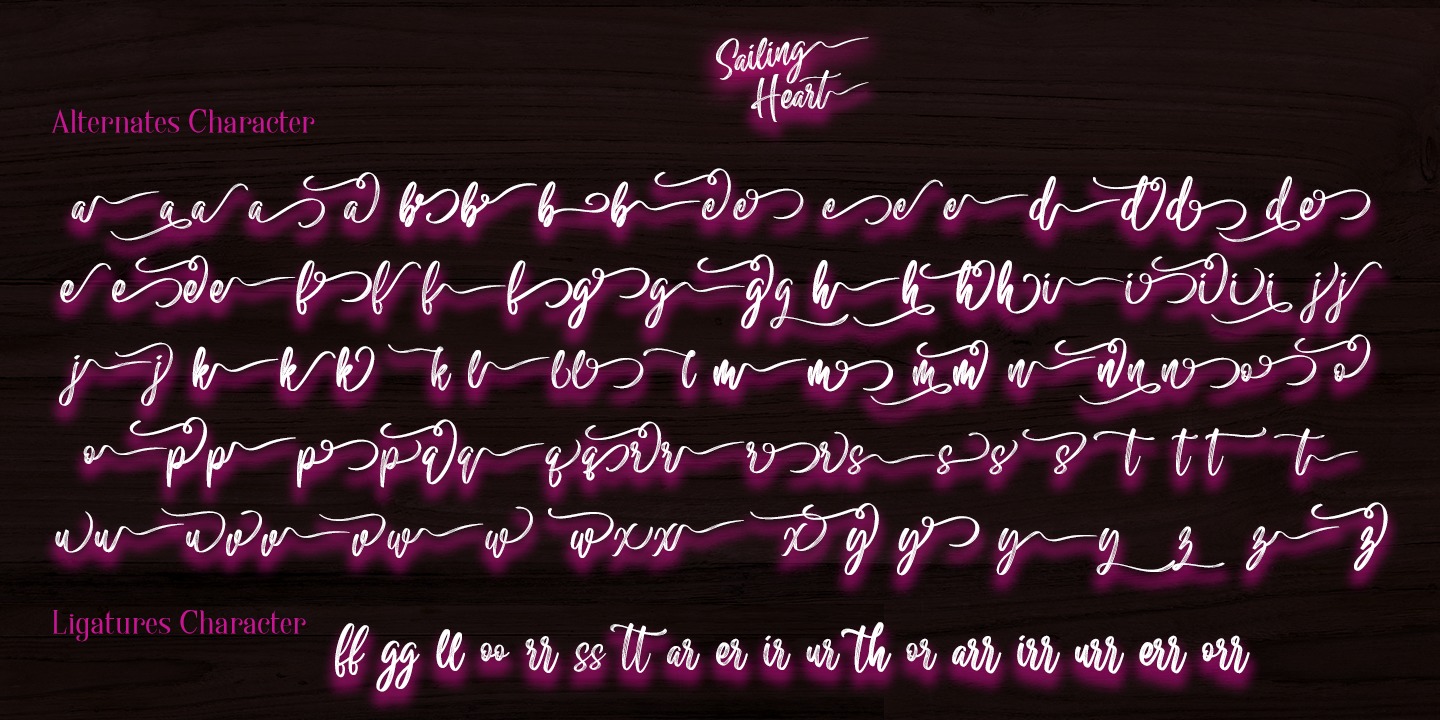 Sailing
Heart
Alternates Character
a a a a a b b b b c c c c c d d d d d e
e e e e f f f f g g g g h h h h i i i i i j j
j j k k k k l l l l m m m m n n n n o o o
o p p p p q q q q r r r r s s s s t t t t
u u u v v v w w w w x x x y y y y z z z
Ligatures Character
ff gg ll oo rr ss tt ar er ir ur th or arr irr urr err orr